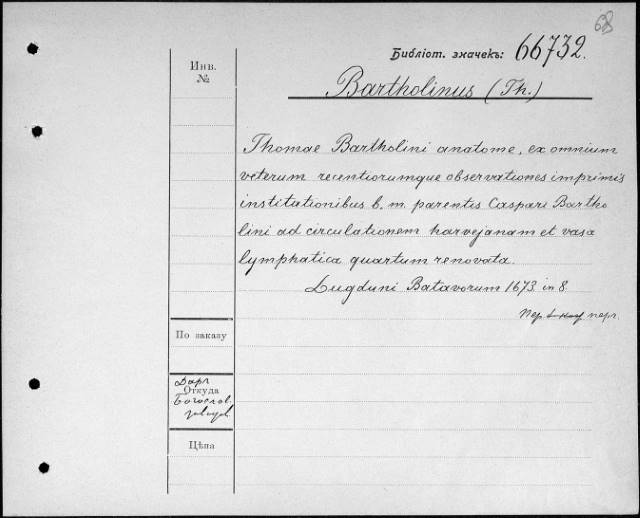 68
Библіот. значекъ: 66732.
Инв.
№
Bartholinus (Th.)
Thomae Bartholini anatome, ex omnium
veterum recentiorumque observationes imprimis
institutionibus b. m. parentis Caspari Bartho
lini ad circulationem harvejanam et vasa
lymphatica quartum renovata.
Lugduni Batavorum 1673 in 8
По заказу
Даръ
Откуда
Цѣна